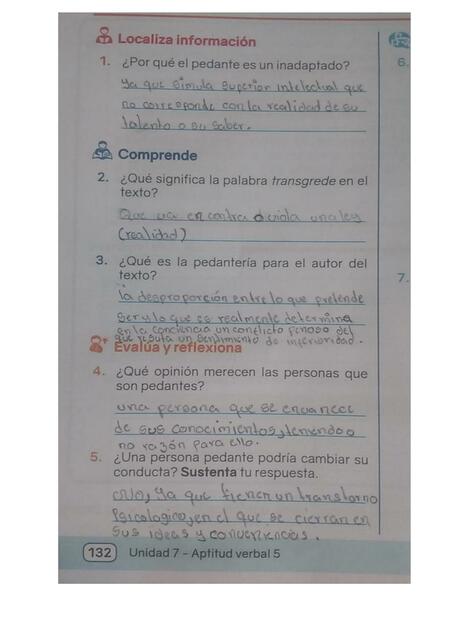 Localiza información
1. ¿Por qué el pedante es un inadaptado?
Ya que simula superior intelectual que
no corresponde con la realidad de su
talento o su saber.
Comprende
2. ¿Qué significa la palabra transgrede en el
texto?
Que va en contra o viola una ley
(realidad)
3. ¿Qué es la pedantería para el autor del
texto?
la desproporción entre lo que pretende
ser y lo que es realmente determina
en la conciencia un conflicto penoso del
que resulta un sentimiento de inferioridad.
Evalúa y reflexiona
4. ¿Qué opinión merecen las personas que
son pedantes?
una persona que se envanece
de sus conocimientos, teniendo o
no razón para ello.
5. ¿Una persona pedante podría cambiar su
conducta? Sustenta tu respuesta.
ya que tienen un transtorno
Psicologico, en el que se cierran en
sus ideas y
132 Unidad 7 - Aptitud verbal 5
6.
7.